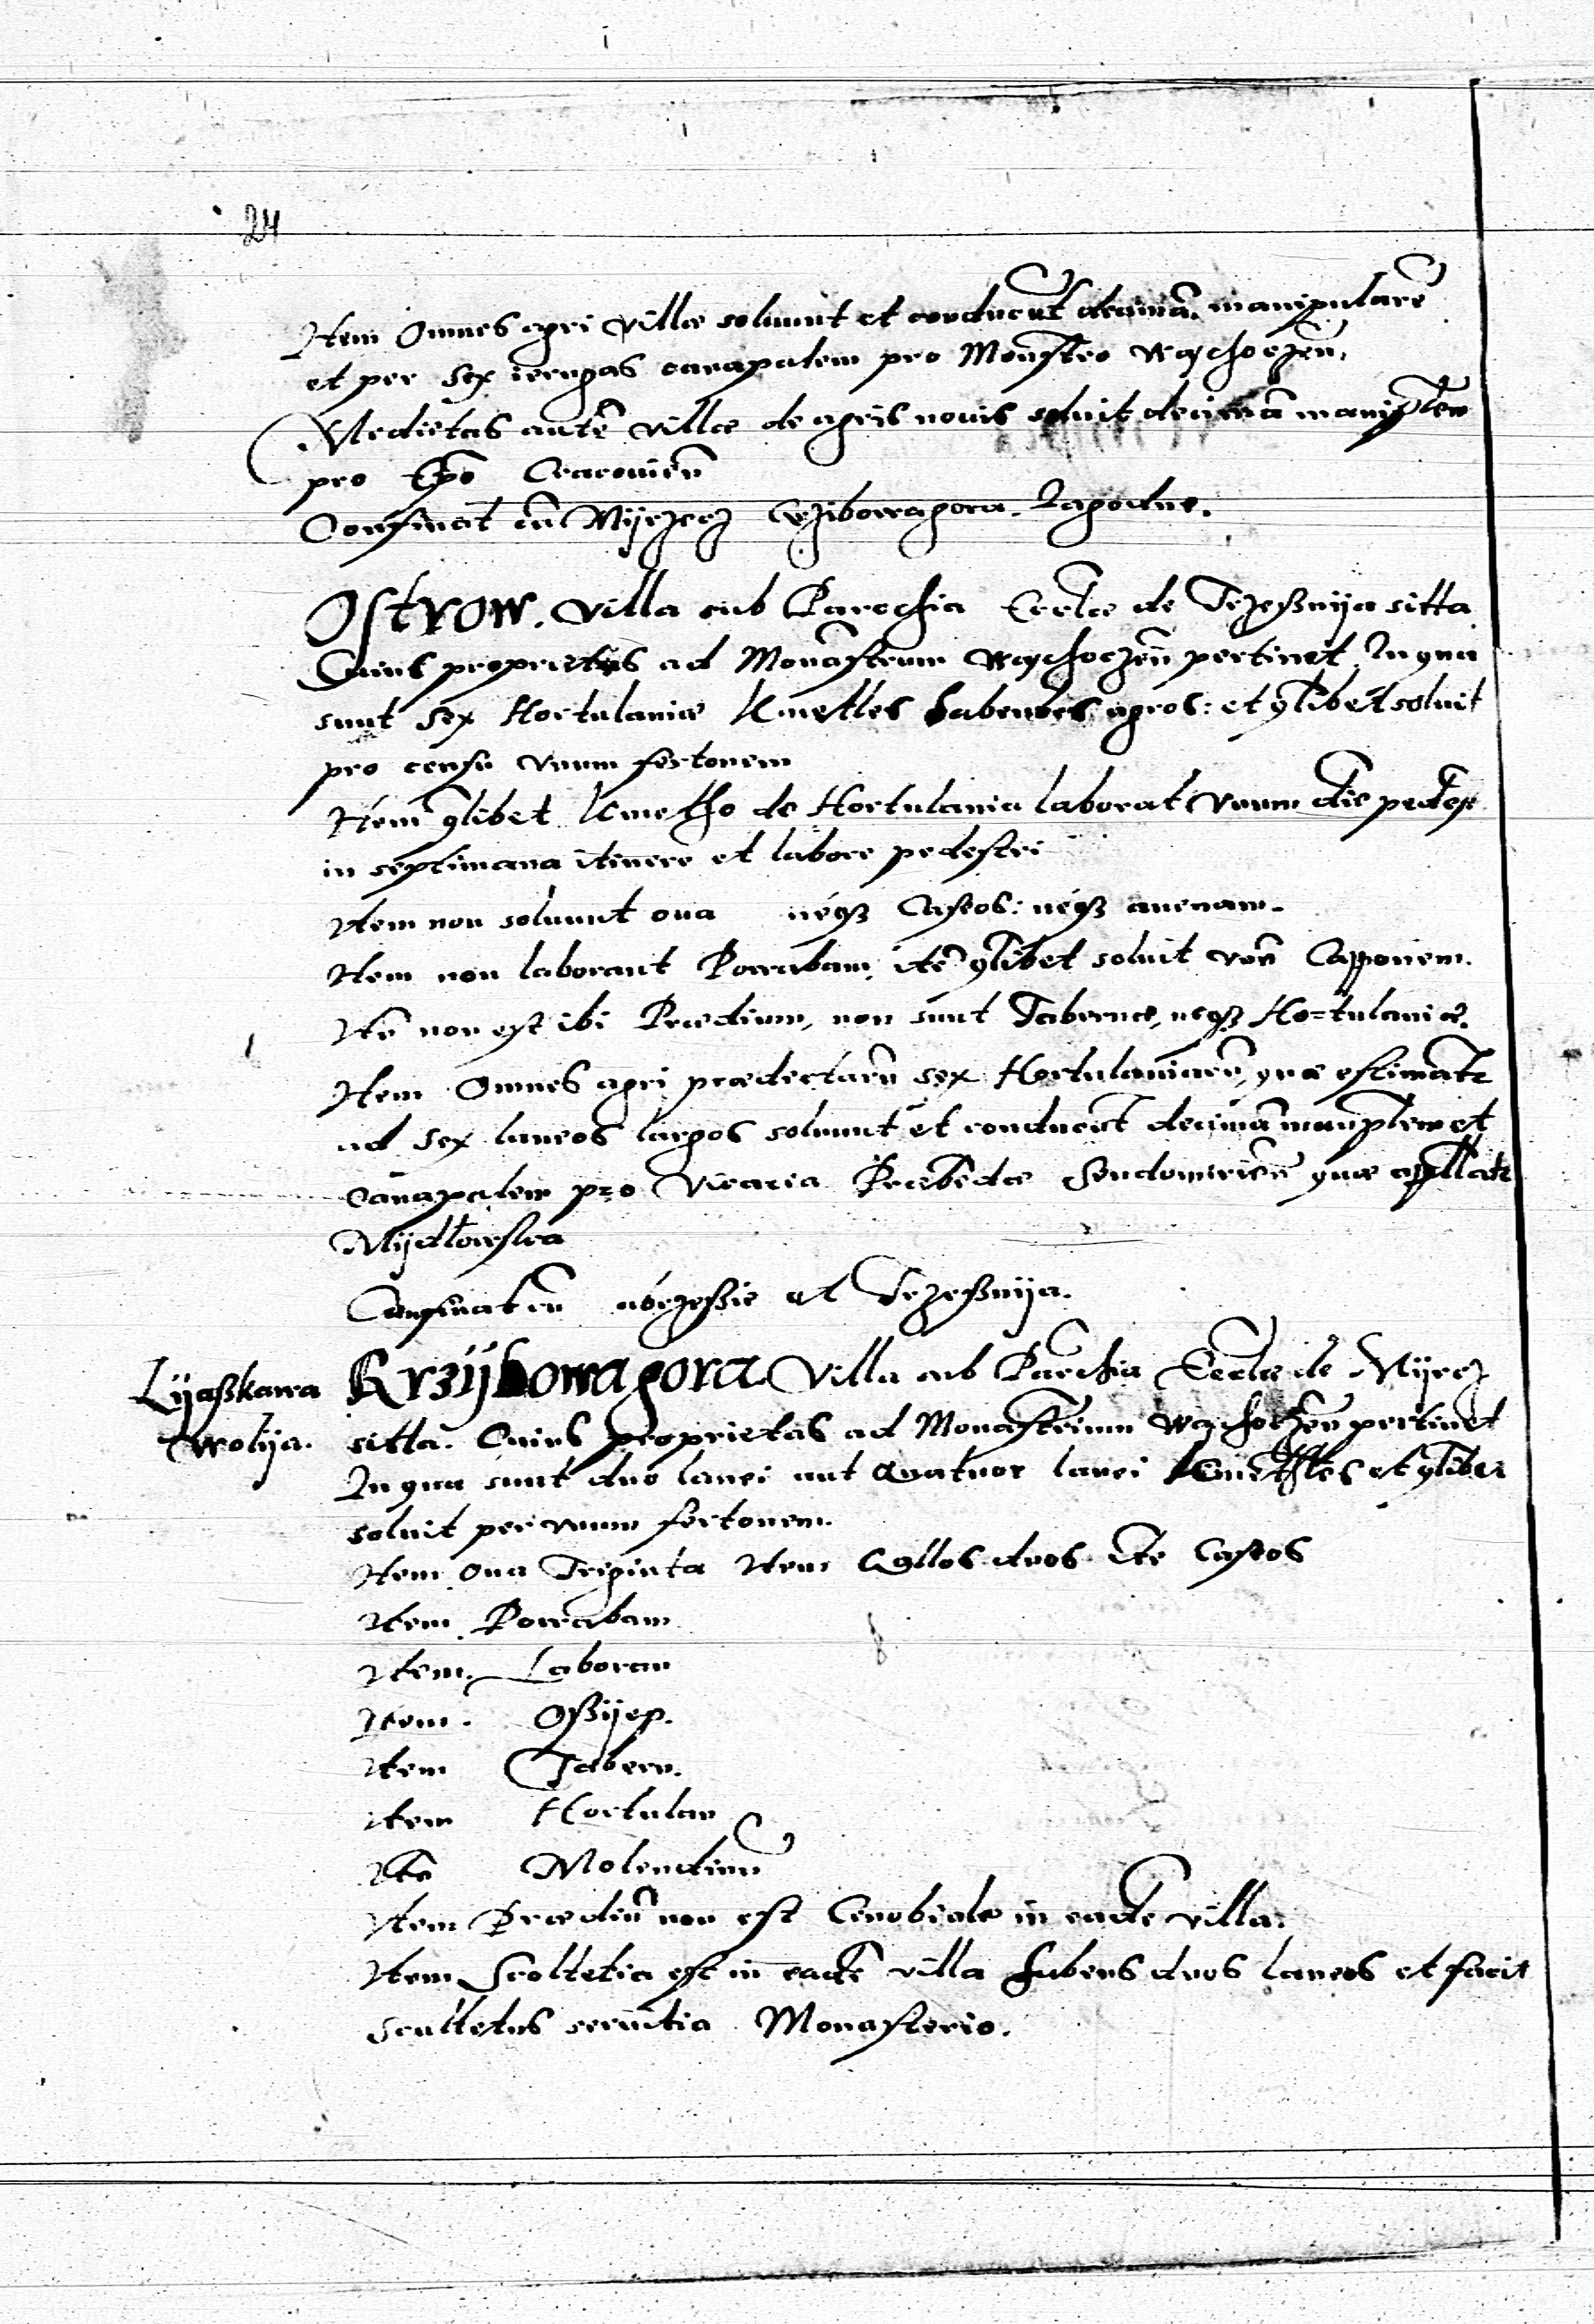 24
Item Omnes agri villæ soluunt et conducũt decimã manipularẽ
et per sex ierugas canapalem pro Monastẽo Wąchoczeñ,
Medietas autẽ villæ de agris nouis soluit decimã manip̃lem
pro Ep̃o Cracouieñ
Confinat cũ Mijrzecz Crzibowagora. Jagodne.
Ostrow. villa sub Parochia Eccl̃æ de Trzeßnija sitta.
Cuius proprietas ad Monasterium Wąchoczeñ pertinet In qua
sunt sex Hortulaniæ Kmethes habentes agros: et q̃libet soluit
pro censu vnum fertonem
Item q̃libet Kmetho de Hortulania laborat vnum diẽ pedes
in septimana itinere et labore pedestri
Item non soluunt oua neqз Caseos: neqз auenam.
Item non laborant Powabam, itẽ q̃libet soluit vnũ Capponem.
Itẽ non est ibi Prædium, non sunt Tabernæ, neqз Hortulaniæ.
Item Omnes agri prædictarũ sex Hortulaniarũ, quæ estimãtr
ad sex laneos largos soluunt et conducũt decimã manip̃lem et
canapalem pro Vicaria Præbẽdæ Sendomirieñ quæ app̃llatr
Mijdłowska
Confinat cũ et Trzeßnija.
Lyaßkawa
wolija.
Krzijbowagora Villa sub Parochia Eccl̃æ de Mijrcz
sitta. Cuius proprietas ad Monasterium Wąchoczeñ pertinet
In qua sunt duo lanei aut Quatuor lanei et q̃libet
soluit per vnum fertonem.
Item Oua Triginta Item Gallos duos Itẽ Caseos
Item Powabam
Item. Laboran
Item. Oßijep.
Item Tabern.
Item Hortulan
Itẽ Molendinũ
Item Prædiũ non est Cenobiale in eadẽ villa.
Item Scoltetia est in eadẽ villa habens duos laneos et facit
scultetus seruitia Monasterio.